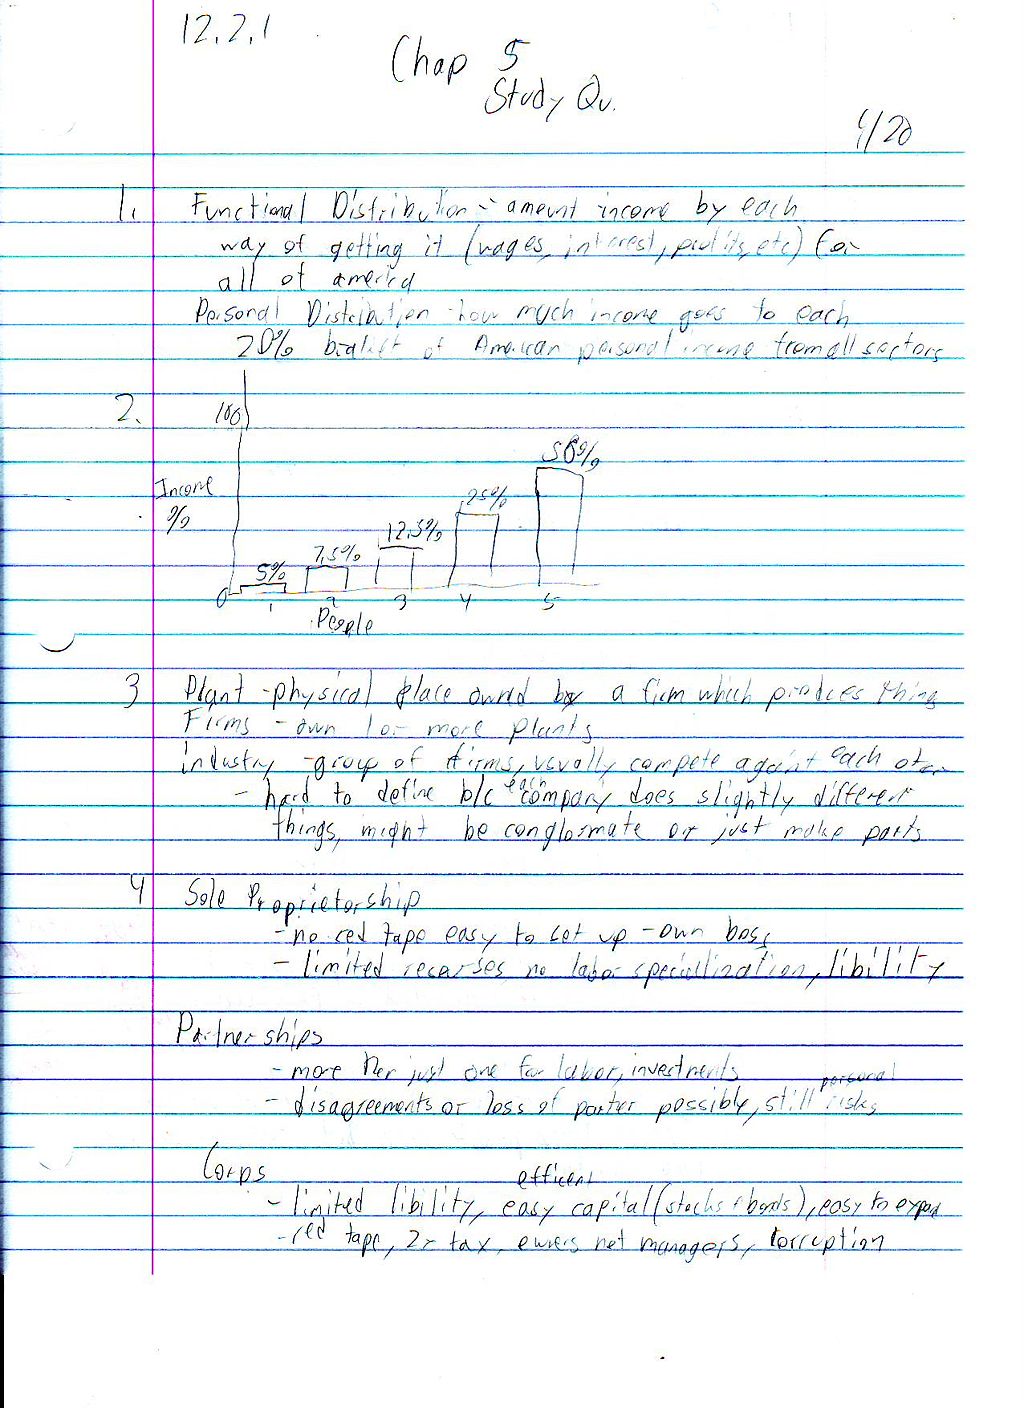 12.2.1
Chap 5
Study Qu.
4/20
1. Functional Distribution - amount income by each
way of getting it (wages, interest, profits, etc) for
all of america
Personal Distribution - how much income goes to each
20% of American personal income from all sectors
2.
100
Income
%
5% 7.5% 12.5% 25% 50%
0 1 2 3 4 5
People
3 Plant - physical place owned by a firm which produces thing
Firms - own 1 or more plants
industry - group of firms, usually compete against each other
- hard to define b/c each company does slightly different
things, might be conglormate or just make parts
4 Sole Proprietorship
- no red tape easy to set up - own boss
- limited recorses no labor speciallization, libility
Partnerships
- more then just one for labor, investments
- disagreements or loss of parter possibly, still personal risks
Corps
- limited libility, easy efficent capital (stocks & bonds), easy to expand
- red tape, 2x tax, owners not managers, corruption